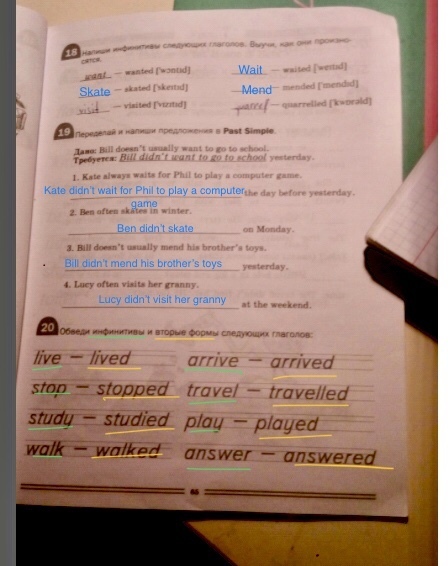 18 Напиши инфинитивы следующих глаголов. Выучи, как они произно-
сятся.
want — wanted ['wɒntɪd] Wait — waited ['weɪtɪd]
Skate — skated ['skeɪtɪd] Mend — mended ['mendɪd]
visit — visited ['vɪzɪtɪd] quarrel — quarrelled ['kwɒrəld]
19 Переделай и напиши предложения в Past Simple.
Дано: Bill doesn't usually want to go to school.
Требуется: Bill didn't want to go to school yesterday.
1. Kate always waits for Phil to play a computer game.
Kate didn't wait for Phil to play a computer the day before yesterday.
game
2. Ben often skates in winter.
Ben didn't skate on Monday.
3. Bill doesn't usually mend his brother's toys.
Bill didn't mend his brother's toys yesterday.
4. Lucy often visits her granny.
Lucy didn't visit her granny at the weekend.
20 Обведи инфинитивы и вторые формы следующих глаголов:
live — lived arrive — arrived
stop — stopped travel — travelled
study — studied play — played
walk — walked answer — answered